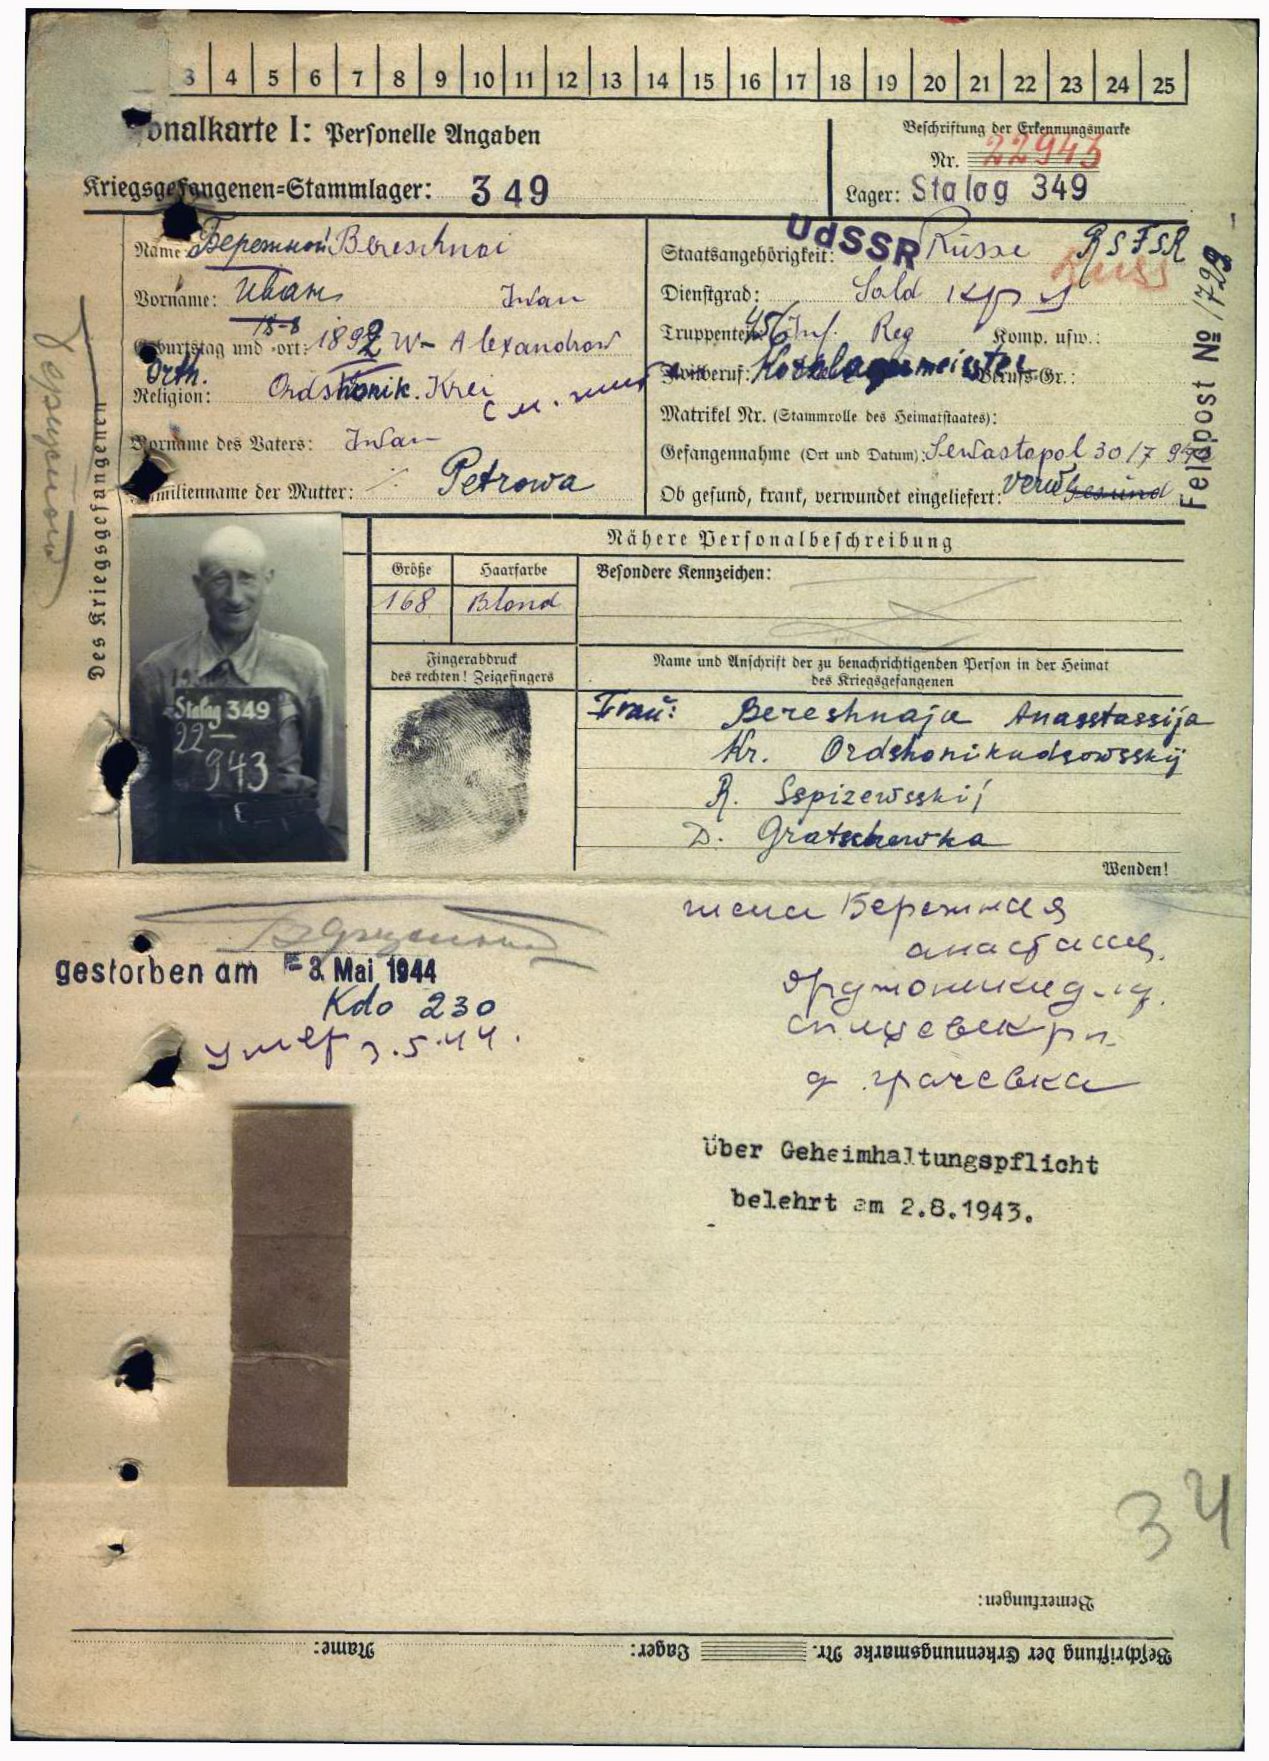 3 4 5 6 7 8 9 10 11 12 13 14 15 16 17 18 19 20 21 22 23 24 25
onalkarte I: Personelle Angaben
Kriegsgefangenen=Stammlager: 349
Beschriftung der Erkennungsmarke
Nr. 22943
Lager: Stalag 349
Des Kriegsgefangenen
Name: Бережной Bereschnoi
Vorname: Иван Iwan
18-8
Geburtstag und -ort: 1892 W- Alexandrow
Orth.
Religion: Ordshonik. Krei
Vorname des Vaters: Iwan
Familienname der Mutter: Petrowa
UdSSR
Staatsangehörigkeit: Russe RSFSR
Russ
Dienstgrad: Sold
Truppenteil: 456 Inf. Reg Komp. usw.:
Zivilberuf: Berufs-Gr.:
Matrikel Nr. (Stammrolle des Heimatstaates):
Gefangennahme (Ort und Datum): Sewastopol 30/7 942
Ob gesund, krank, verwundet eingeliefert: verw gesund
Feldpost № 1729
Nähere Personalbeschreibung
Größe Haarfarbe Besondere Kennzeichen:
168 Blond
Fingerabdruck
des rechten! Zeigefingers
Name und Anschrift der zu benachrichtigenden Person in der Heimat
des Kriegsgefangenen
Stalag 349
22
943
Frau: Bereshnaja Anasstassija
Kr. Ordshonikidsowsskij
R. Sspizewsskij
D. Gratschewka
Wenden!
жена Бережная
gestorben am - 3. Mai 1944
Kdo 230
умер 3.5.44.
д. грачевка
Über Geheimhaltungspflicht
belehrt am 2.8.1943.
34
Bemerkungen:
Beschriftung der Erkennungsmarke Nr. Lager: Name: